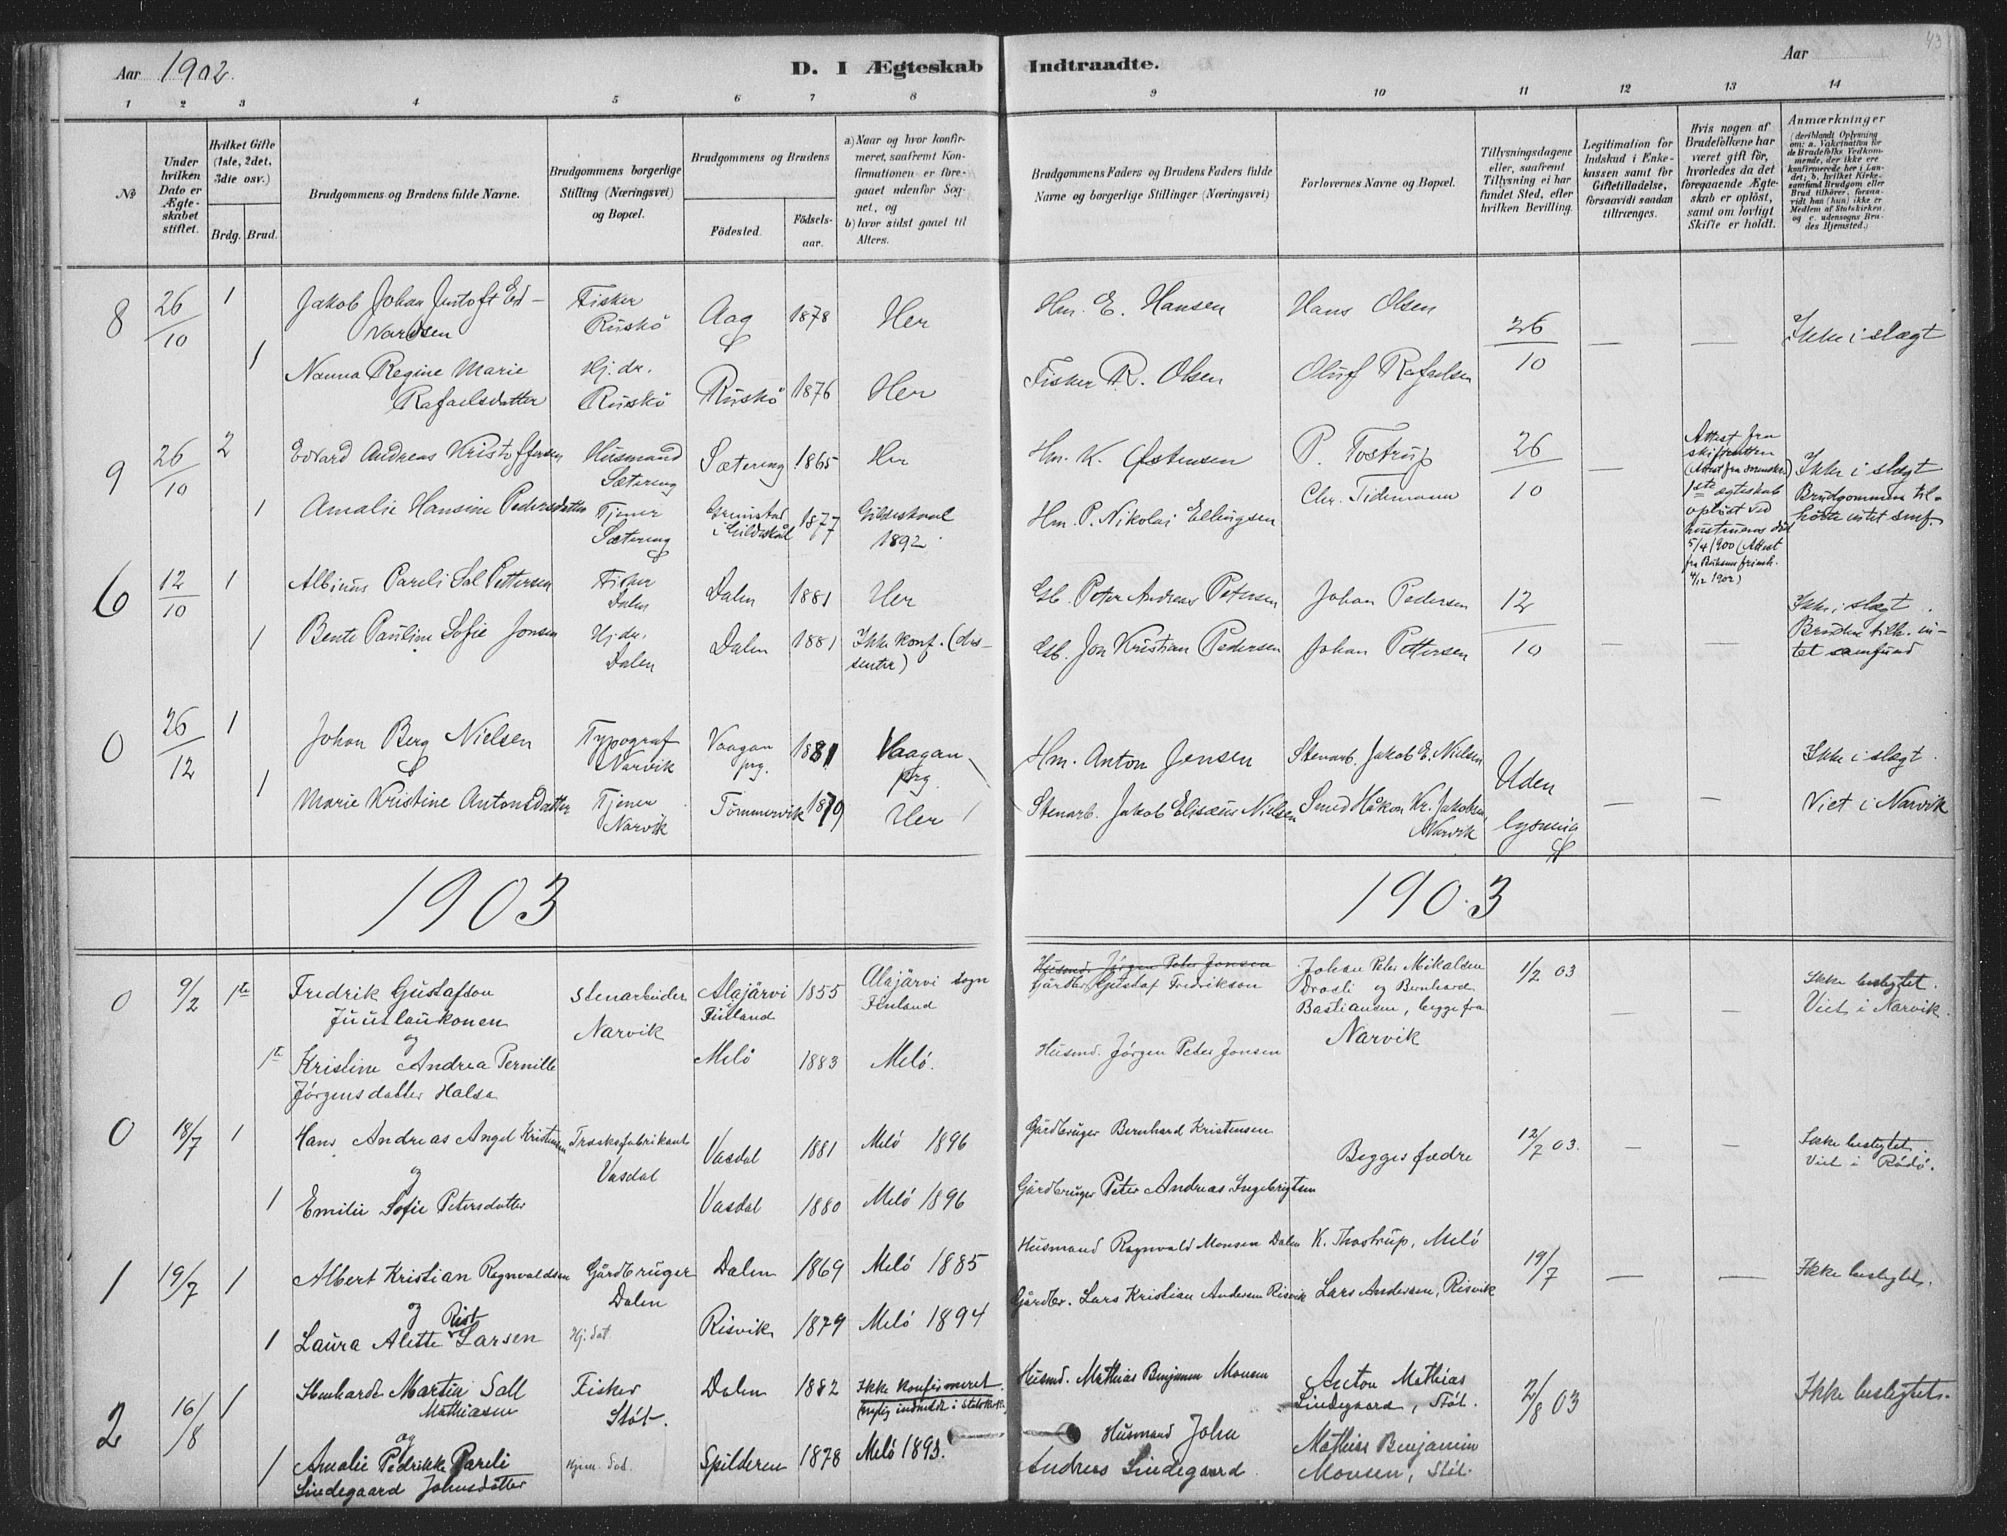 Aar 1902.
D. I Ægteskab Indtraadte.
Aar
43
1 2 3 4 5 6 7 8 9 10 11 12 13 14
No
Under hvilken Dato er Ægteskabet stiftet.
Hvilket Gifte (1ste, 2det, 3die osv.)
Brdg. Brud.
Brudgommens og Brudens fulde Navne.
Brudgommens borgerlige Stilling (Næringsvei) og Bopæl.
Brudgommens og Brudens
Fødested.
Fødsels-aar.
a) Naar og hvor konfirmeret, saafremt Konfirmationen er foregaaet udenfor Sognet, og
b) hvor sidst gaaet til Alters.
Brudgommens Faders og Brudens Faders fulde Navne og borgerlige Stillinger (Næringsvei)
Forlovernes Navne og Bopæl.
Tillysningsdagene eller, saafremt Tillysning ei har fundet Sted, efter hvilken Bevilling.
Legitimation for Indskud i Enkekassen samt for Giftetilladelse, forsaavidt saadan tiltrænges.
Hvis nogen af Brudefolkene har været gift før, hvorledes da det foregaaende Ægteskab er opløst, samt om lovligt Skifte er holdt.
Anmærkninger
(deriblandt Oplysning om: a. Vakcination for de Brudefolks Vedkommende, der ikke ere konfirmerede her i Landet; b. hvilket Kirkesamfund Brudgom eller Brud tilhører, forsaavidt han (hun) ikke er Medlem af Statskirken, og c. udensogns Brudes Hjemsted.)
8 26/10 1 Jakob Johan Justoft Edvardsen Fisker Ruskø Aag 1878 Her Hm. E. Hansen Hans Olsen 26/10 — — Ikke i slægt
1 Nanna Regine Marie Rafaelsdatter Hj. dr. Ruskø Ruskø 1876 Her Fisker R. Olsen Oluf Rafaelsen
9 26/10 2 Edvard Andreas Kristoffersen Husmand Sætering Sætering 1865 Her Hm. K. Østensen P. Tostrup 26/10 — Attest fra skifteretten 1ste ægteskab opløst ved hustruens død 5/4 1900 (Attest 4/12 1902) Ikke i slægt Brudgommen tilhørte intet smf.
1 Amalie Hansine Pedersdatter Tjener Sætering Grimstad i Gildeskål 1877 Gildeskaal 1892 Hm. P. Nikolai Ellingsen Chr. Tidemann
6 12/10 1 Albinus Pareli Sal Pettersen Fisker Dalen Dalen 1881 Her Gb. Peter Andreas Petersen Johan Pedersen 12/10 — — Ikke i slægt. Bruden tilh. intet samfund
1 Bente Pauline Sofie Jonsen Hj. dr. Dalen Dalen 1881 Ikke konf. (dissenter) Gb. Jon Kristian Pedersen Johan Pettersen
0 26/12 1 Johan Berg Nielsen Typograf Narvik Vaagan prg. 1881 Vaagan prg. Hm. Anton Jensen Stenarb. Jakob E. Nielsen Uden lysning — — Ikke i slægt. Viet i Narvik
1 Marie Kristine Antonsdatter Tjener Narvik Tømmervik 1879 Her Stenarb. Jakob Elisæus Nielsen Smed Håkon Kr. Jakobsen Narvik
1903 1903
0 9/2 1ste Fredrik Gustafson Juutlaukonen Stenarbeider Narvik Alajärvi Finland 1855 Alajärvi sogn Finland Husmd. Jørgen Peter Jonsen Gårdbr. Gustaf Fredrikson Johan Peter Mikalsen og Bernhard Bastiansen, begge fra Narvik 1/2 03 — — Ikke beslegtet. Viet i Narvik.
og
1ste Kristine Andrea Pernille Jørgensdatter Halsa Melø 1883 Melø. Husmd. Jørgen Peter Jonsen
0 18/7 1 Hans Andreas Angel Kristensen Vasdal Vasdal 1881 Melø 1896 Gårdbruger Bernhard Kristensen Begges fædre 12/7 03. — — Ikke beslegtet. Viet i Rødø.
og
1 Emilie Sofie Petersdatter Vasdal 1880 Melø 1896 Gårdbruger Peter Andreas Ingebrigtsen
1 19/7 1 Albert Kristian Ragnvaldsen Gårdbruger Dalen Dalen 1869 Melø 1885 Husmand Ragnvald Monsen Dalen K. Thostrup, Melø 19/7 — — Ikke beslegtet.
og
1 Laura Alette Rist Larsen Hj. dat. Risvik 1879 Melø 1894 Gårdbr. Lars Kristian Andersen Risvik Lars Andersen, Risvik
2 16/8 1 Martin Sall Mathiasen Fisker Støt. Dalen 1882 Ikke konfirmeret. (nylig indmeldt i Statskirk.) Husmd. Mathias Benjamin Monsen Anton Mathias Lindegaard, Støt. 2/8 03 Ikke beslegtet.
og
1 Amalie Pedrikke Pareli Lindegaard Johnsdatter Hjem. Dat. Spilderen 1878 Melø 1893. Husmand John Andreas Lindegaard Mathias Benjamin Monsen, Støt.